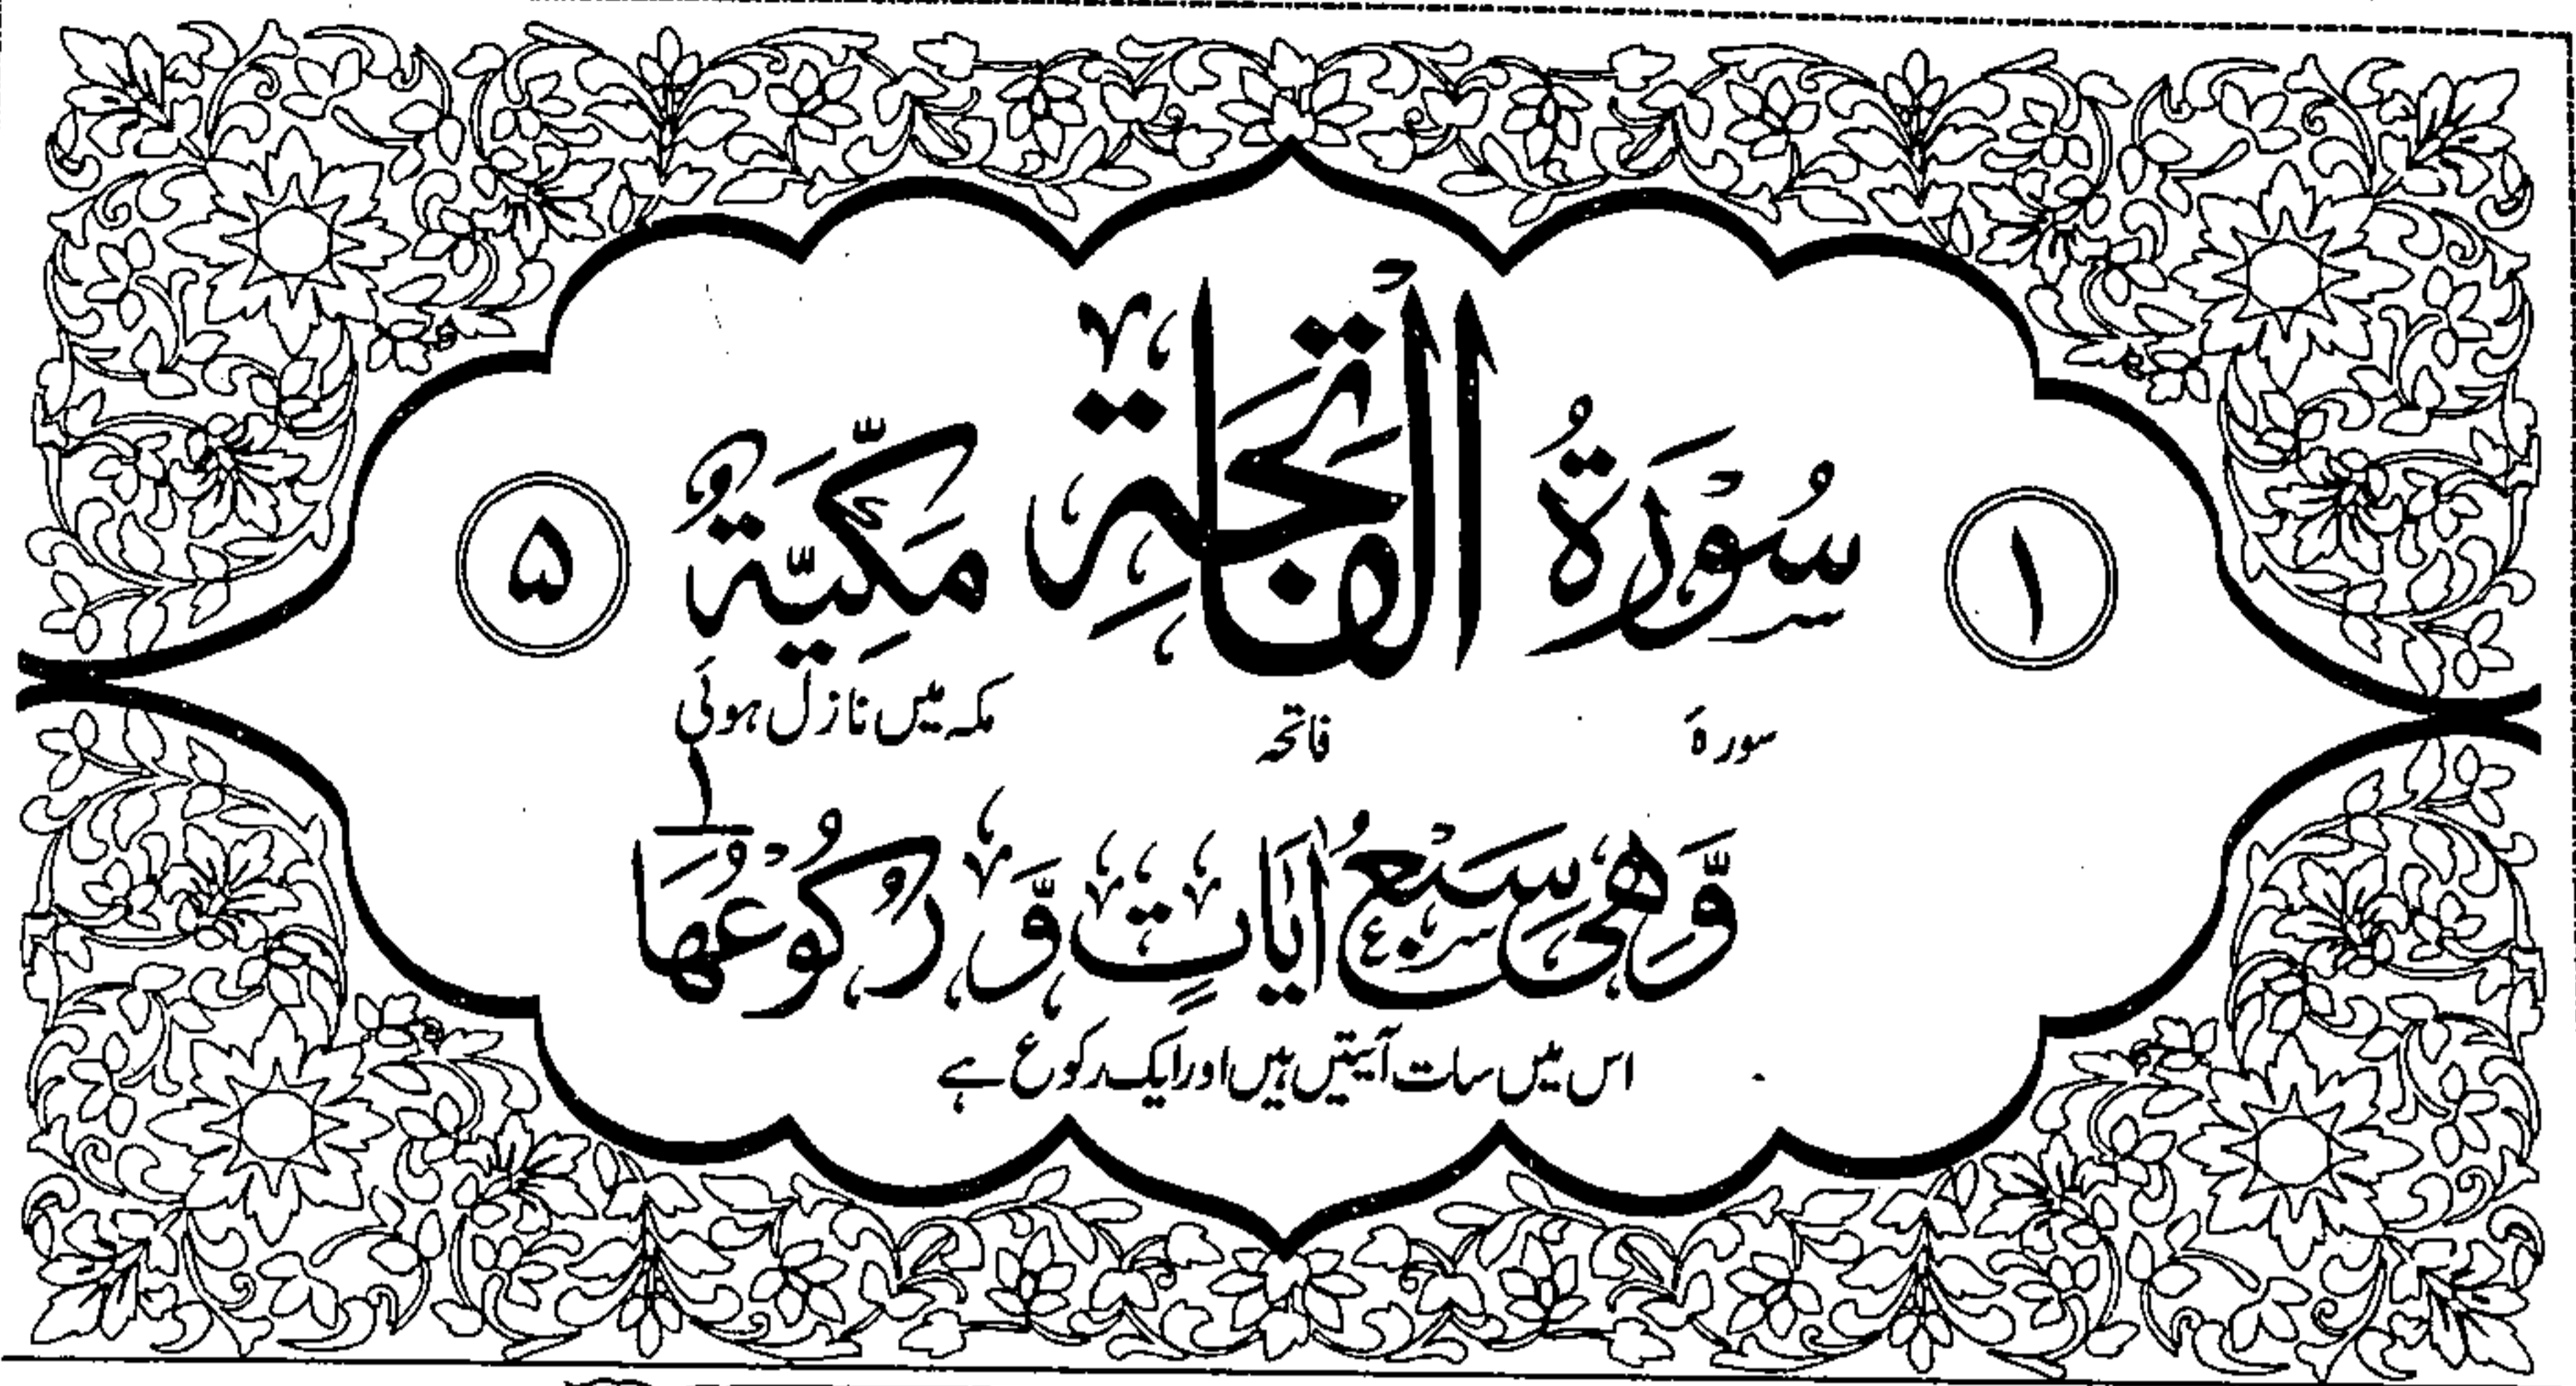 ۱ سُوْرَةُ الْفَاتِحَةِ مَكِّيَّةٌ ۵
سورۃ فاتحہ مکہ میں نازل ہوئی
وَّهِیَ سَبْعُ اٰیَاتٍ وَّ رُكُوْعُهَا ۱
اس میں سات آیتیں ہیں اور ایک رکوع ہے